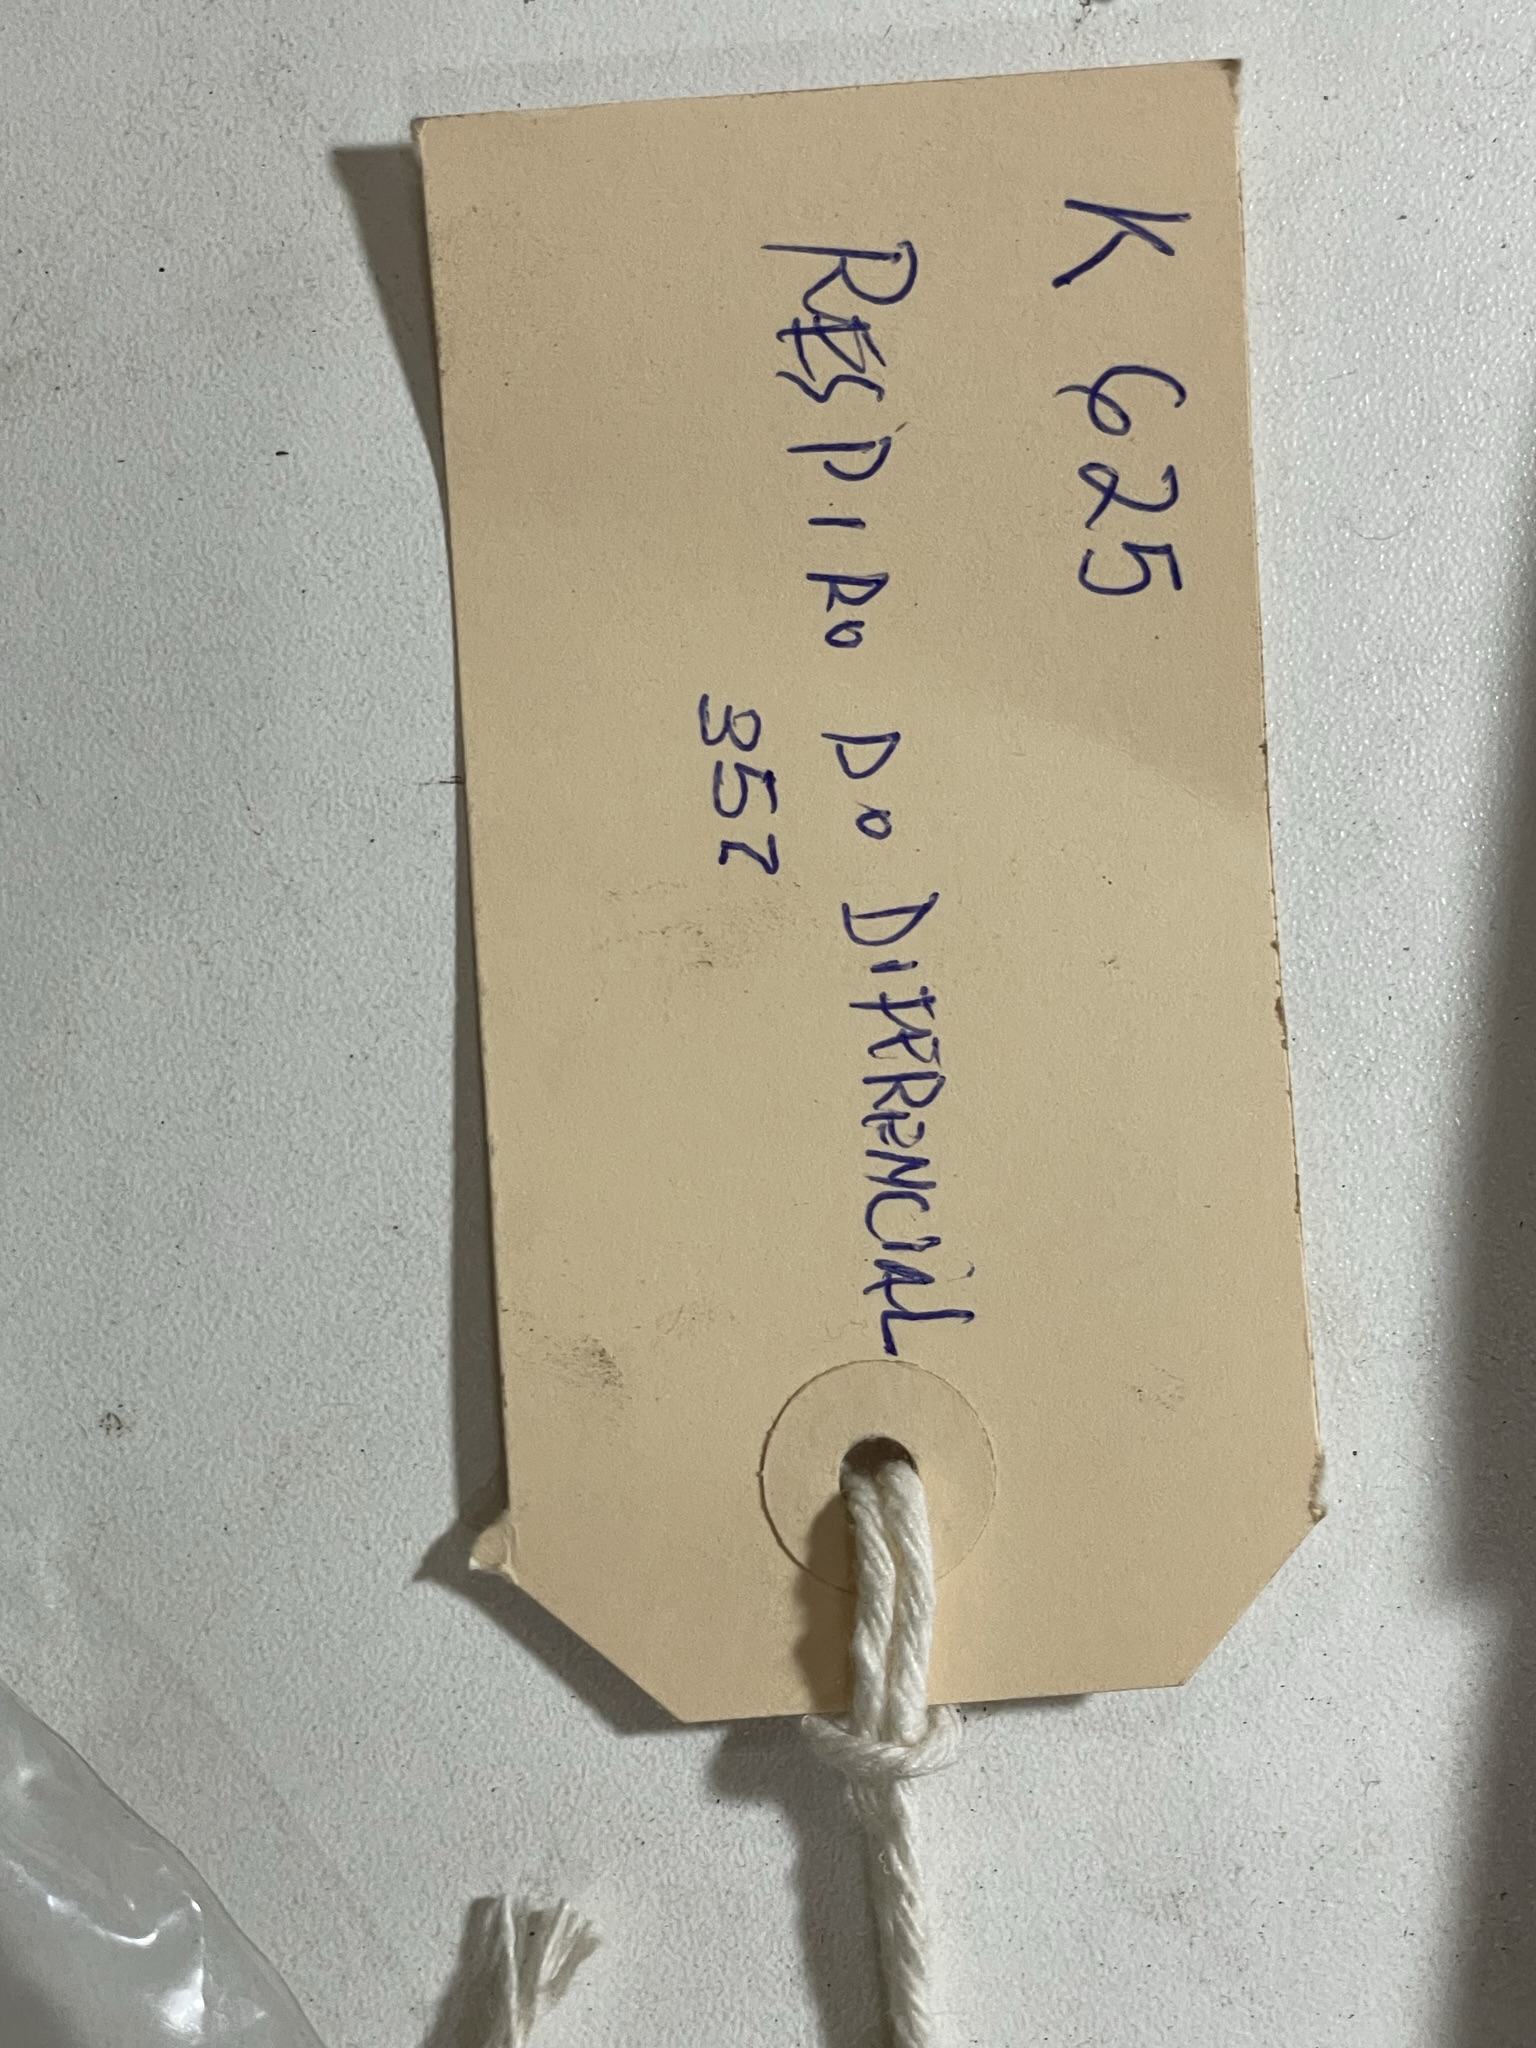 K 625
RESPIRO DO DIFERENCIAL
357